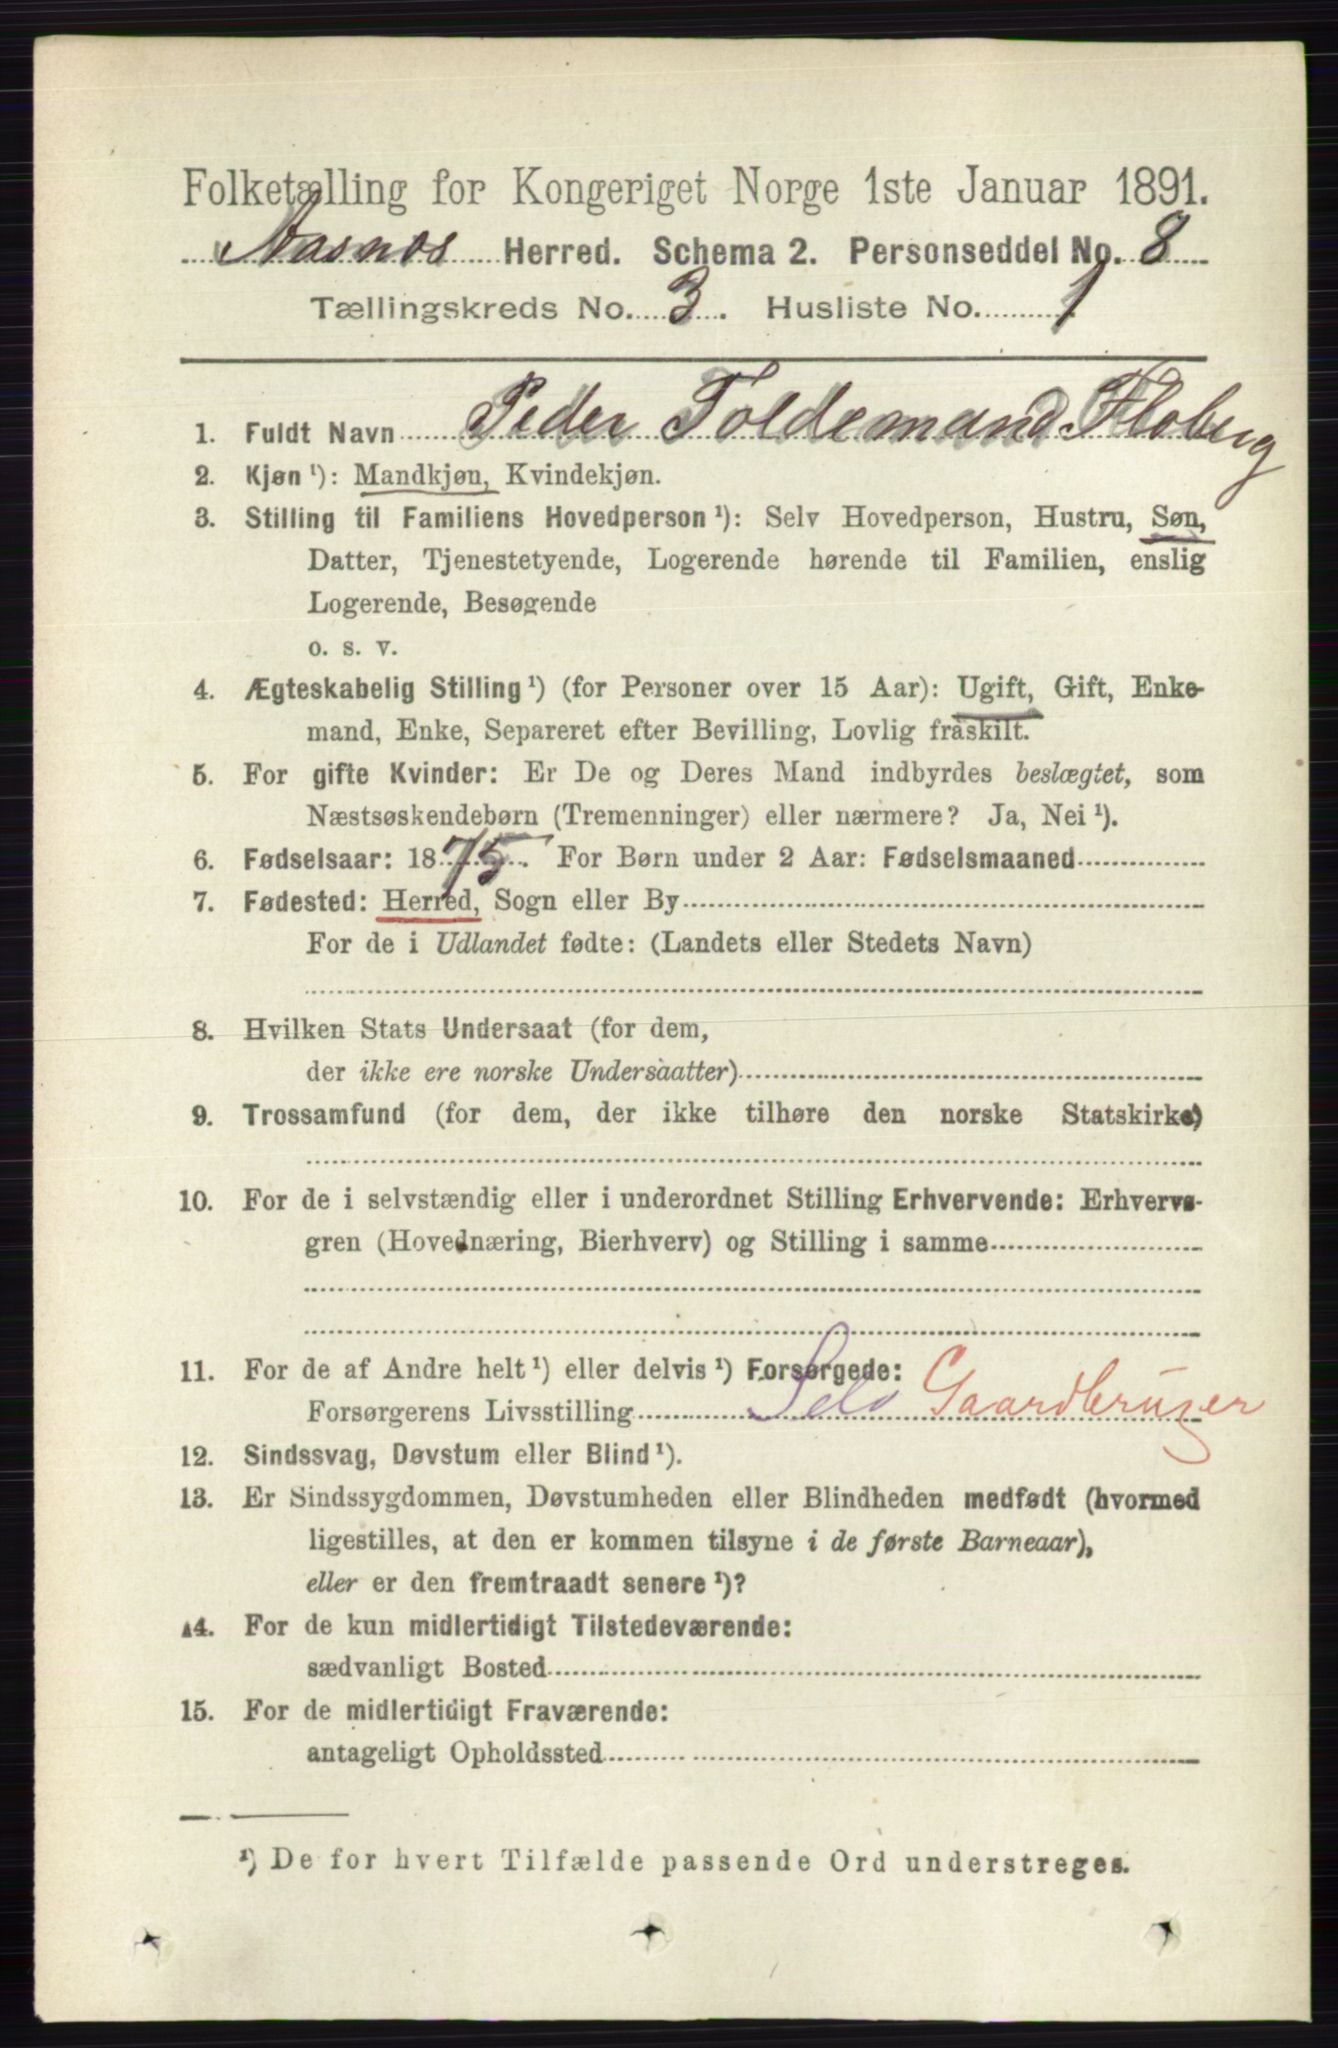 Folketælling for Kongeriget Norge 1ste Januar 1891.
Aasnes Herred. Schema 2. Personseddel No. 8
Tællingskreds No. 3. Husliste No. 1
1. Fuldt Navn Peder Toldemand Floberg
2. Kjøn ¹): Mandkjøn, Kvindekjøn.
3. Stilling til Familiens Hovedperson ¹): Selv Hovedperson, Hustru, Søn,
Datter, Tjenestetyende, Logerende hørende til Familien, enslig
Logerende, Besøgende
o. s. v.
4. Ægteskabelig Stilling ¹) (for Personer over 15 Aar): Ugift, Gift, Enke-
mand, Enke, Separeret efter Bevilling, Lovlig fraskilt.
5. For gifte Kvinder: Er De og Deres Mand indbyrdes beslægtet, som
Næstsøskendebørn (Tremenninger) eller nærmere? Ja, Nei ¹).
6. Fødselsaar: 1875. For Børn under 2 Aar: Fødselsmaaned
7. Fødested: Herred, Sogn eller By
For de i Udlandet fødte: (Landets eller Stedets Navn)
8. Hvilken Stats Undersaat (for dem,
der ikke ere norske Undersaatter)
9. Trossamfund (for dem, der ikke tilhøre den norske Statskirke)
10. For de i selvstændig eller i underordnet Stilling Erhvervende: Erhvervs-
gren (Hovednæring, Bierhverv) og Stilling i samme
11. For de af Andre helt ¹) eller delvis ¹) Forsørgede:
Forsørgerens Livsstilling Selv Gaardbruger
12. Sindssvag, Døvstum eller Blind ¹).
13. Er Sindssygdommen, Døvstumheden eller Blindheden medfødt (hvormed
ligestilles, at den er kommen tilsyne i de første Barneaar),
eller er den fremtraadt senere ¹)?
14. For de kun midlertidigt Tilstedeværende:
sædvanligt Bosted
15. For de midlertidigt Fraværende:
antageligt Opholdssted
¹) De for hvert Tilfælde passende Ord understreges.